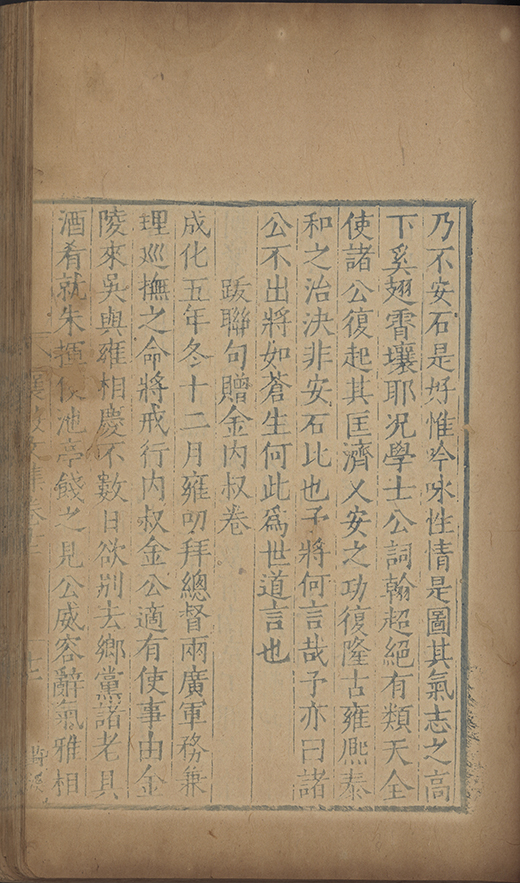 乃不安石是好惟吟咏性情是圖其氣志之高
下奚翅霄壤耶况學士公詞翰超絕有類天全
使諸公復起其匡濟乂安之功復隆古雍熈泰
和之治決非安石比也予將何言哉予亦曰諸
公不出將如蒼生何此爲世道言也
跋聯句贈金内叔卷
成化五年冬十二月雍叨拜總督兩廣軍務兼
理巡撫之命將戒行内叔金公適有使事由金
陵來吳與雍相慶不數日欲别去鄉黨諸老具
酒肴就朱揮使池亭餞之見公威容辭氣雅相
襄毅文集卷